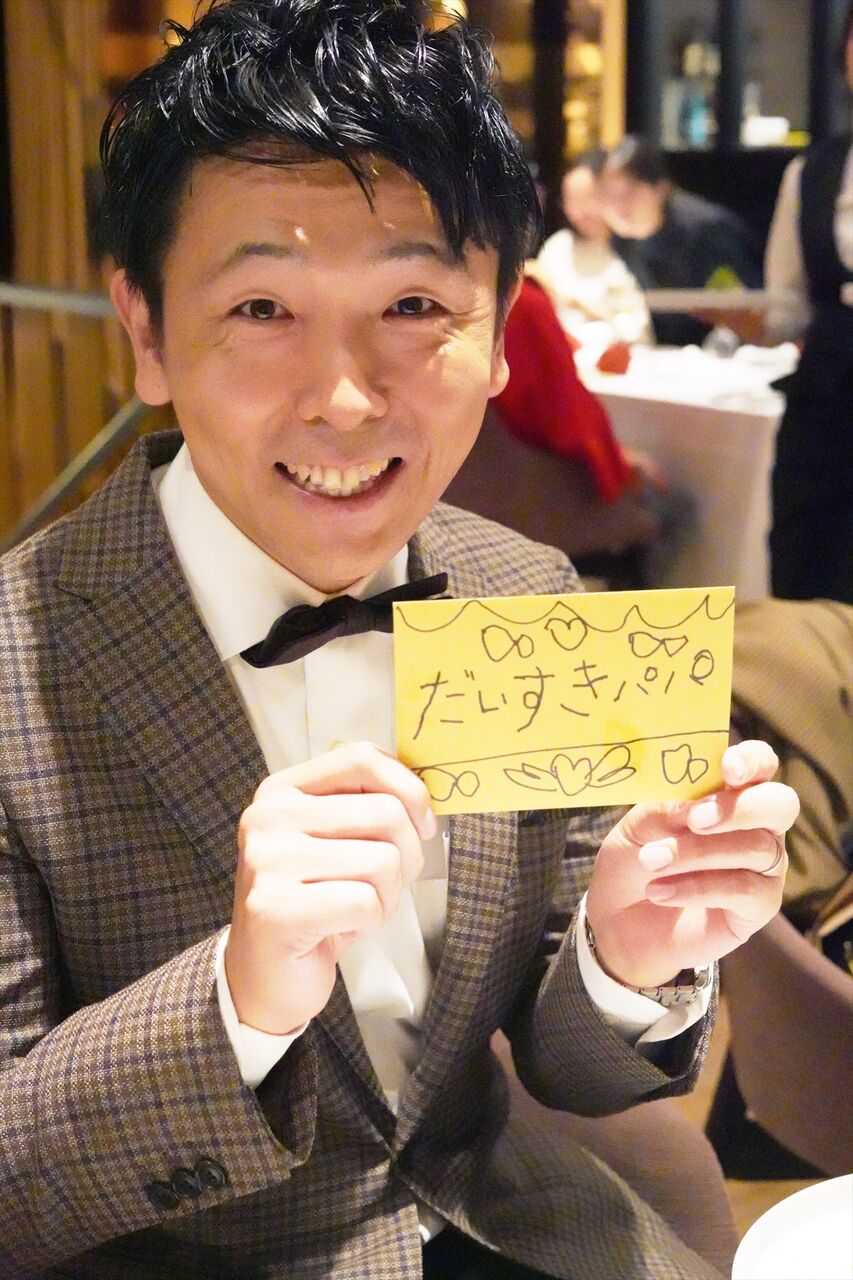 だいすきパパ